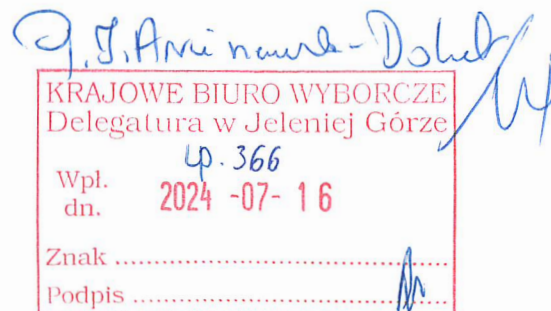 KRAJOWE BIURO WYBORCZE
Delegatura w Jeleniej Górze
Lp. 366
Wpł.
dn. 2024 -07- 16
Znak
Podpis